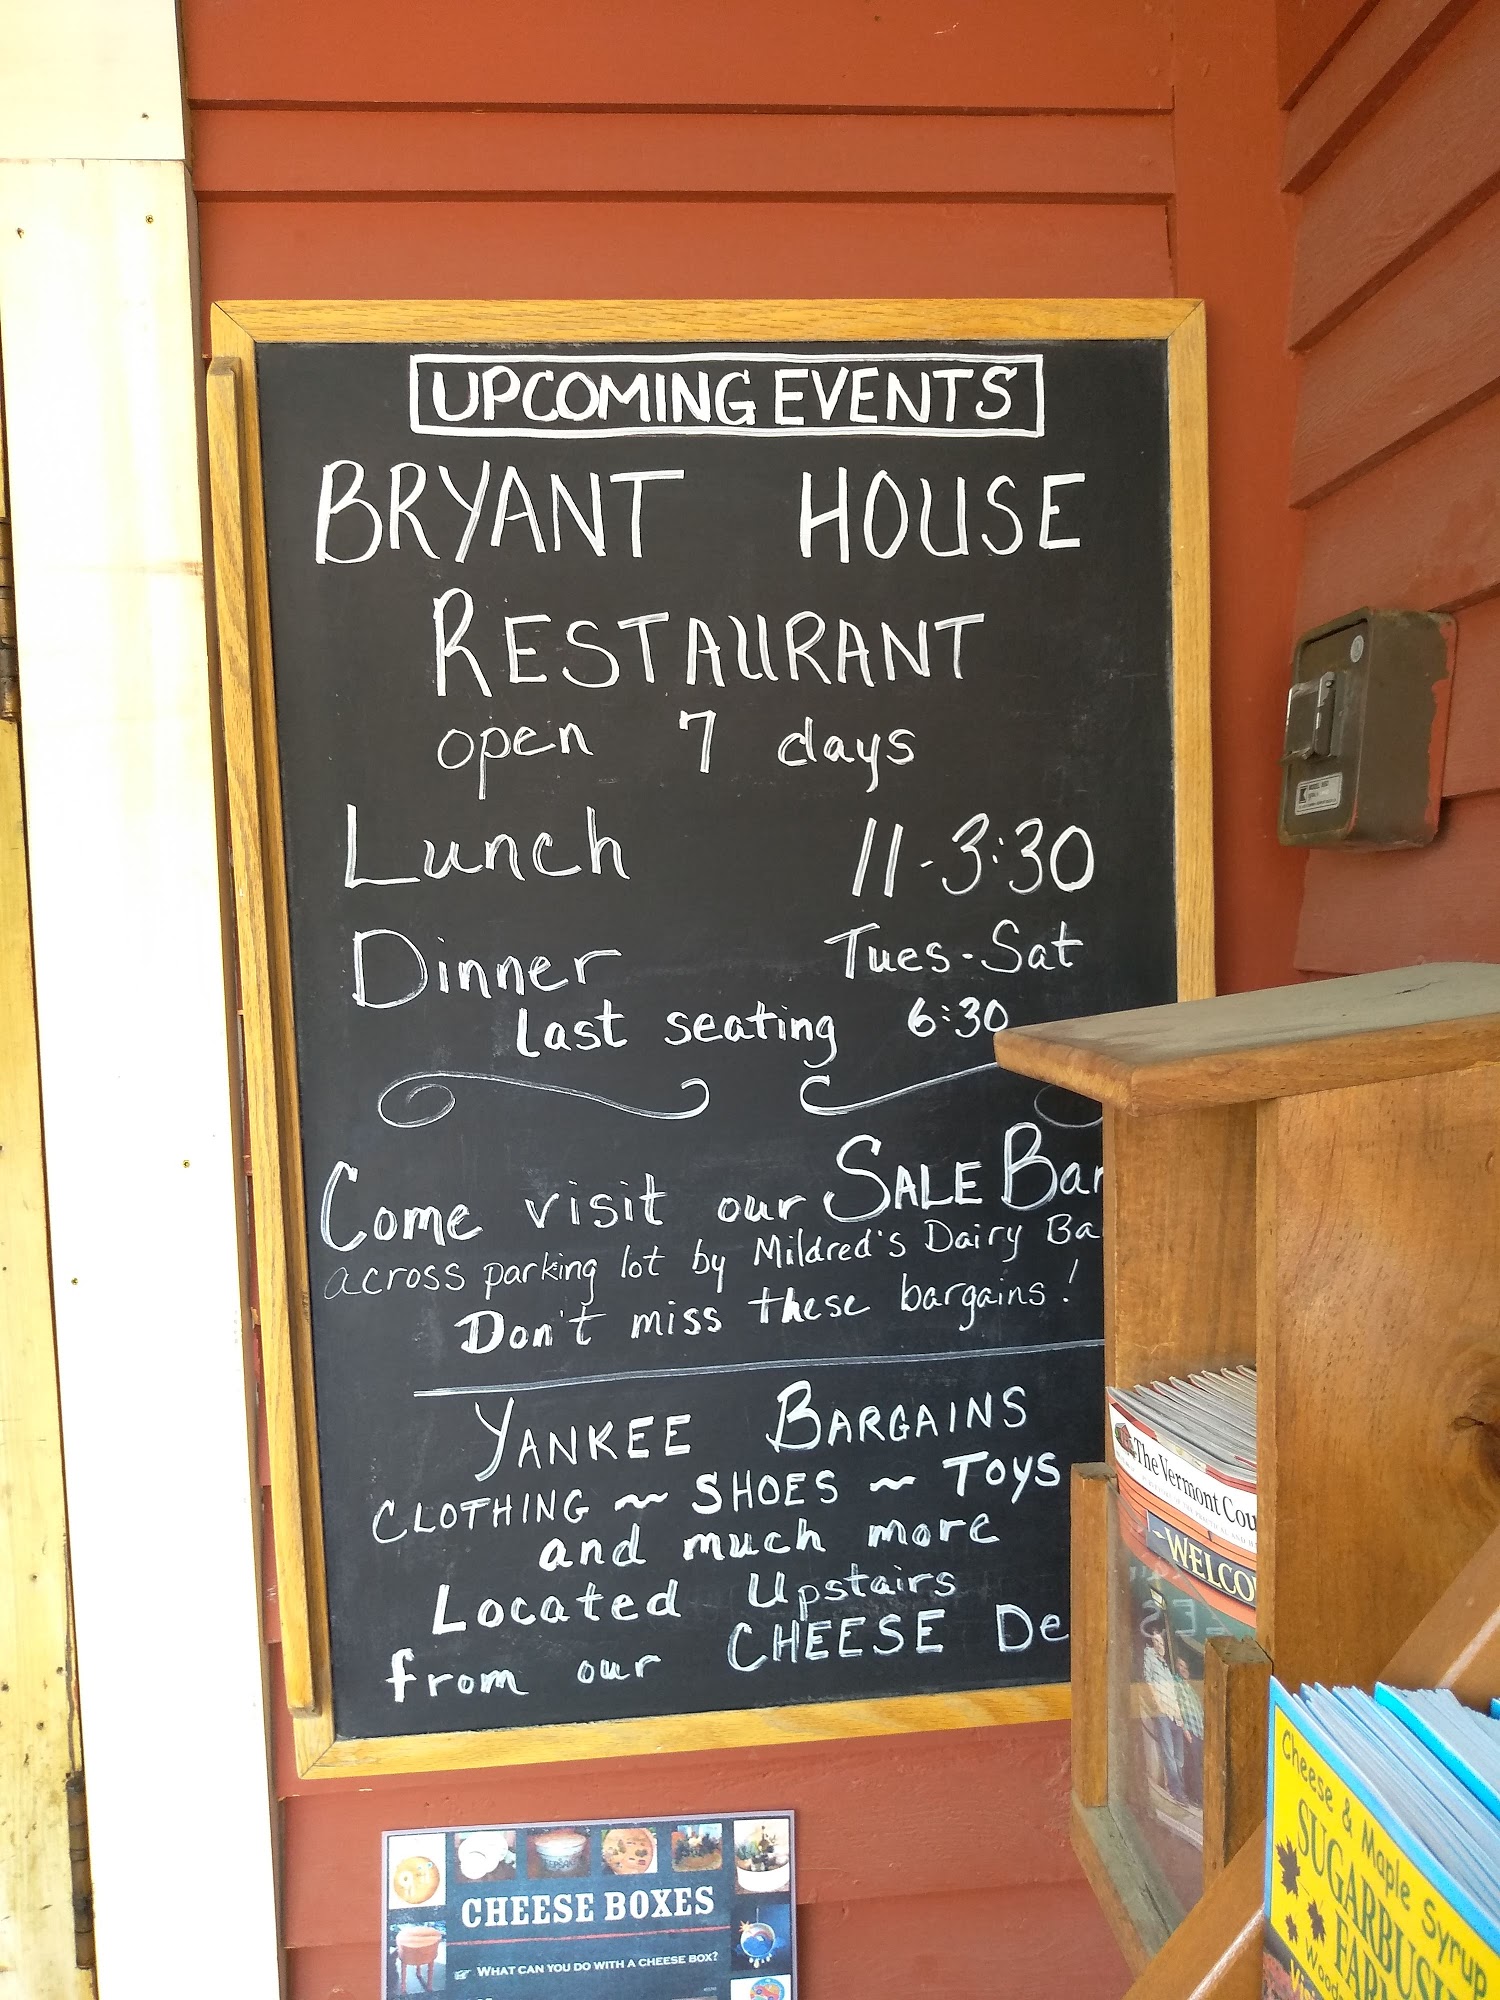 UPCOMING EVENTS
BRYANT HOUSE
RESTAURANT
open 7 days
Lunch 11-3:30
Dinner Tues-Sat
last seating 6:30
Come visit our SALE Bar
across parking lot by Mildred's Dairy Ba
Don't miss these bargains!
YANKEE BARGAINS
CLOTHING ~ SHOES ~ TOYS
and much more
Located Upstairs
from our CHEESE De
The Vermont Cou
-WELCO
CHEESE BOXES
WHAT CAN YOU DO WITH A CHEESE BOX?
Cheese & Maple Syrup
SUGARBUS
FARM